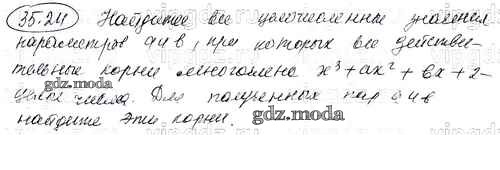 35.24 Найдите все целочисленные значения
параметров a и b, при которых все действи-
тельные корни многочлена x³ + ax² + bx + 2 -
gdz.moda
целые числа. Для полученных пар a и b
gdz.moda
найдите эти корни.
gdz.moda